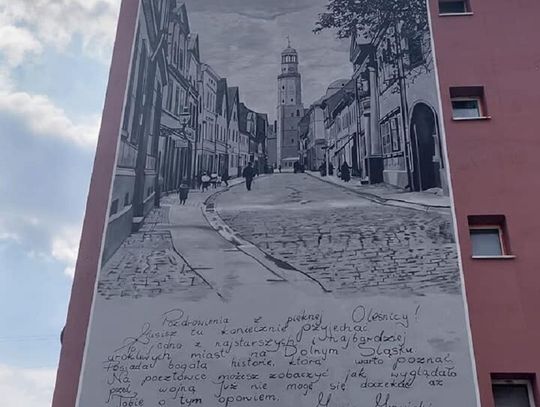 Pozdrowienia z pięknej Oleśnicy!
Musisz tu koniecznie przyjechać.
To jedno z najstarszych i najbardziej
urokliwych miast na Dolnym Śląsku
Posiada bogatą historię, którą warto poznać
Na pocztówce możesz zobaczyć jak wyglądało
przed wojną. Już nie mogę się doczekać aż
Tobie o tym opowiem.